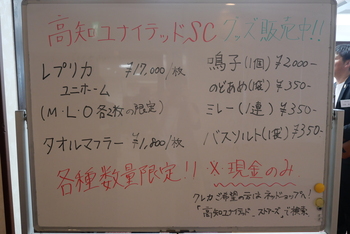 高知ユナイテッドSC グッズ販売中!!
レプリカ ¥17,000/枚
ユニホーム
(M・L・O 各2枚の限定)
タオルマフラー ¥1,800/枚
鳴子(1個) ¥2000-
のどあめ(1袋) ¥350-
ミレー(1連) ¥350-
バスソルト(1袋) ¥350-
各種数量限定!! ※現金のみ
クレカご希望の方はネットショップへ!
「高知ユナイテッド ストアーズ」で検索